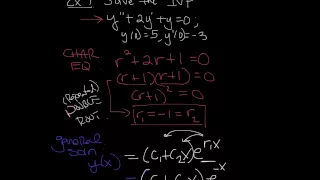 Ex 1 Solve the IVP
y" + 2y' + y = 0,
y(0) = 5, y'(0) = -3
CHAR EQ r² + 2r + 1 = 0
(r+1)(r+1) = 0
(r+1)² = 0
(Repeated) DOUBLE ROOT r₁ = -1 = r₂
general soln y(x) = (c₁ + c₂x) e^{r₁x}
= (c₁ + c₂x) e^{-x}